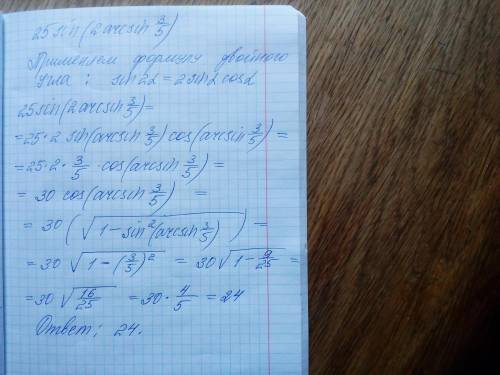 25 sin(2 arcsin 3/5)
Применяем формулу двойного
угла: sin 2α = 2 sin α cos α
25 sin(2 arcsin 3/5) =
= 25 · 2 sin(arcsin 3/5) cos(arcsin 3/5) =
= 25 · 2 · 3/5 · cos(arcsin 3/5) =
= 30 cos(arcsin 3/5) =
= 30 (√(1 - sin²(arcsin 3/5))) =
= 30 √(1 - (3/5)²) = 30 √(1 - 9/25) =
= 30 √(16/25) = 30 · 4/5 = 24
Ответ: 24.